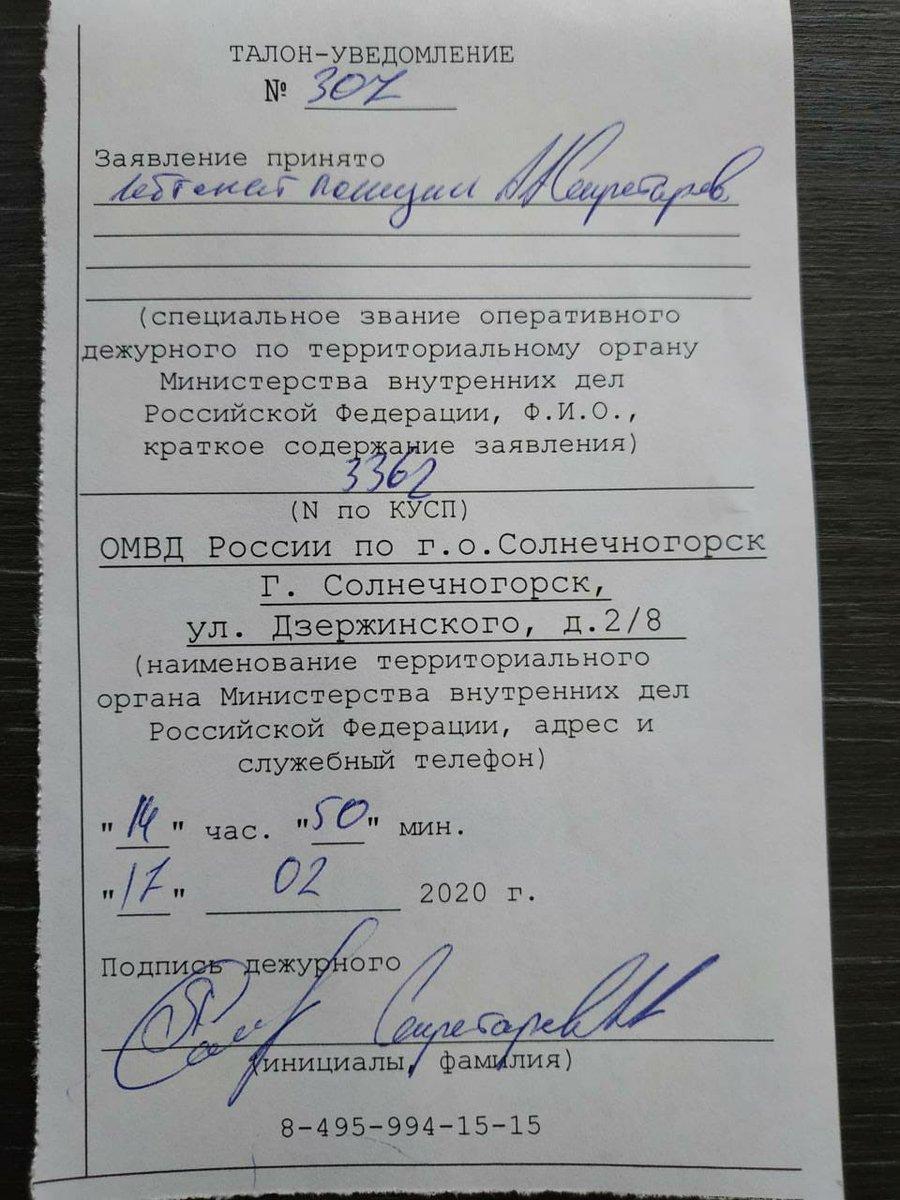 ТАЛОН-УВЕДОМЛЕНИЕ
№ 307
Заявление принято
лейтенант полиции А.А. Секретарев
(специальное звание оперативного
дежурного по территориальному органу
Министерства внутренних дел
Российской Федерации, Ф.И.О.,
краткое содержание заявления)
3362
(N по КУСП)
ОМВД России по г.о.Солнечногорск
Г. Солнечногорск,
ул. Дзержинского, д.2/8
(наименование территориального
органа Министерства внутренних дел
Российской Федерации, адрес и
служебный телефон)
"14" час. "50" мин.
"17" 02 2020 г.
Подпись дежурного
Секретарев А.А.
(инициалы, фамилия)
8-495-994-15-15